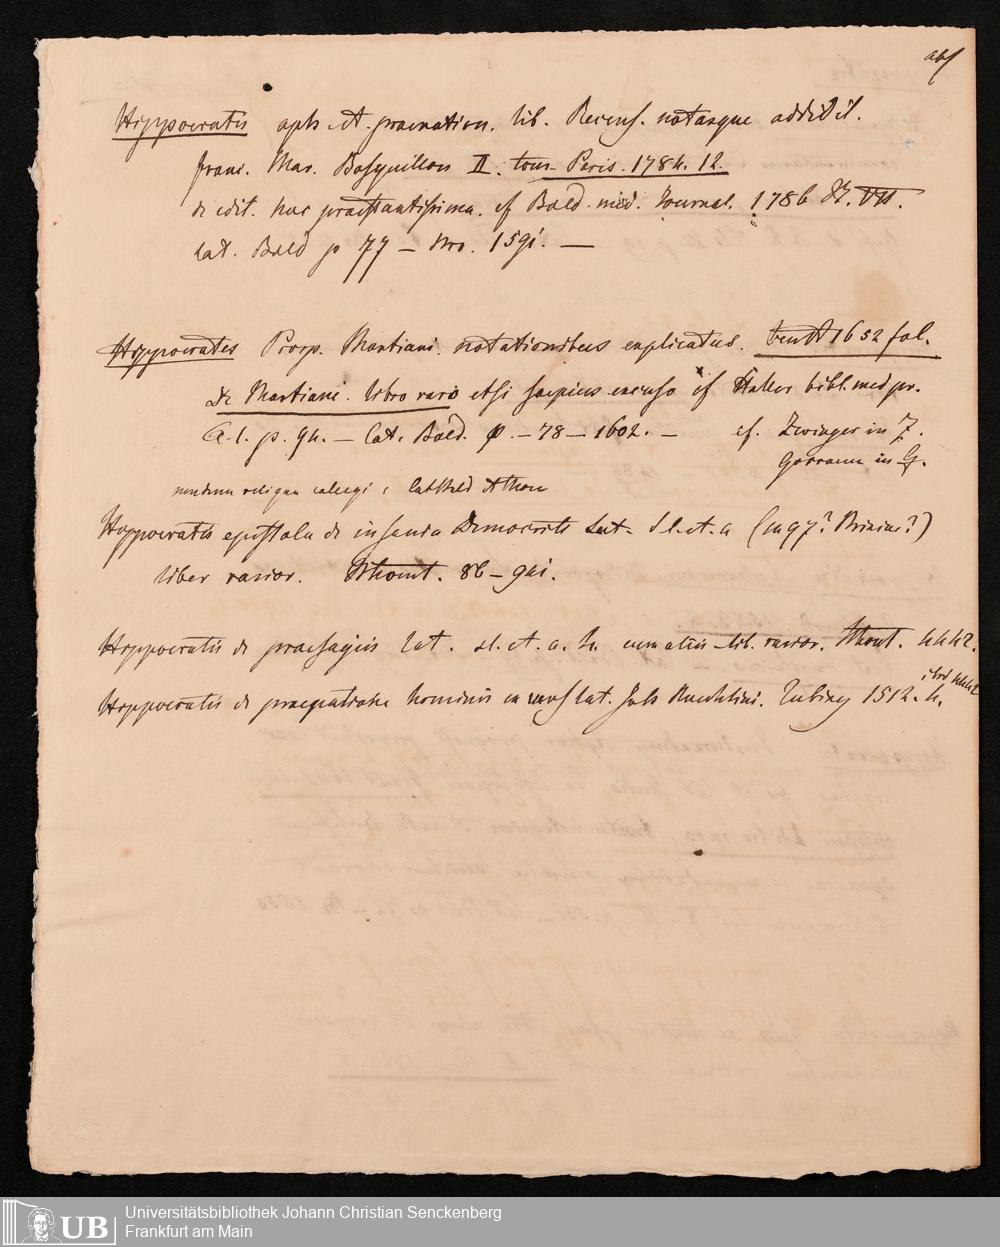 abs
Hippocratis aph. et praenotion. lib. Recens. notasque addidit.
franc. Mar. Bosquillon II. tom. Paris. 1784. 12.
de edit. hac praestantissima. cf Bald. med. Journal. 1786 St. VII.
Cat. Bald p 77 – Nro. 1591. —
Hippocrates Prosp. Martiani. notationibus explicatus. Venet 1652 fol.
de Martiani. libro raro etsi saepius excuso cf Haller bibl. med pr.
T. I. p. 94. – Cat. Bald. p. – 78 – 1602. – cf. Zwinger in Z.
Gorraeus in G.
Cat Bald
Hippocratis epistola de insania Democriti Lat. S. l. et. a (in 97? Brixiae?)
liber rarior. 86 – 941.
Hippocratis de praesagiis Lat. s. l. et. a. 4. cum aliis lib. rarior. 4442.
ibid 4442
Hippocratis de praeparatione hominis ex vers lat. Joh Reuchlini. Tubing 1512. 4.
UB
Universitätsbibliothek Johann Christian Senckenberg
Frankfurt am Main